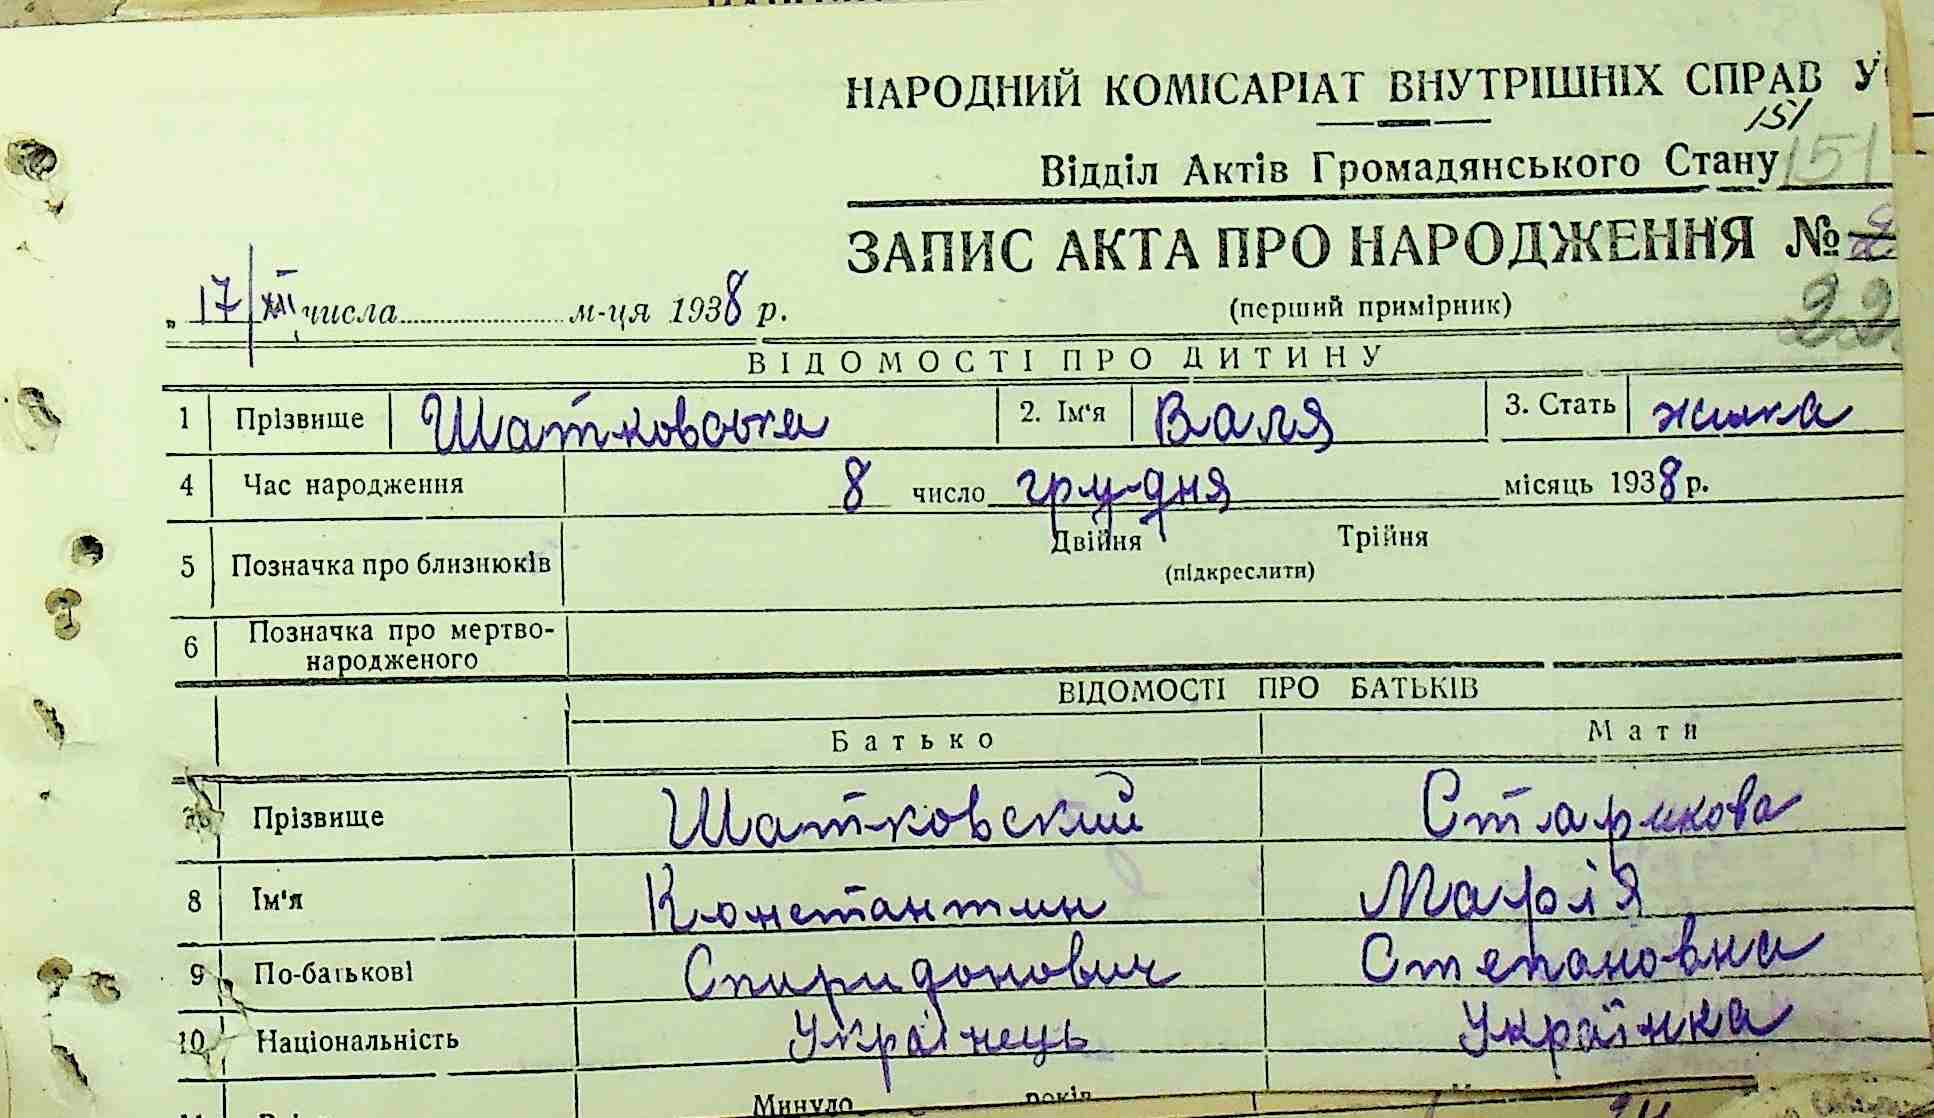 НАРОДНИЙ КОМІСАРІАТ ВНУТРІШНІХ СПРАВ
151
Відділ Актів Громадянського Стану 151
ЗАПИС АКТА ПРО НАРОДЖЕННЯ №
„ 17/XII числа м-ця 1938 р.
(перший примірник) 22
ВІДОМОСТІ ПРО ДИТИНУ
1 Прізвище Шатковська 2. Ім'я Валя 3. Стать жинка
4 Час народження 8 число грудня місяць 1938 р.
5 Позначка про близнюків Двійня Трійня
(підкреслити)
6 Позначка про мертво-
народженого
ВІДОМОСТІ ПРО БАТЬКІВ
Батько Мати
Прізвище Шатковский Старикова
8 Ім'я Константин Марія
9 По-батькові Спиридонович Степановна
10 Національність Українець Українка
Минуло років